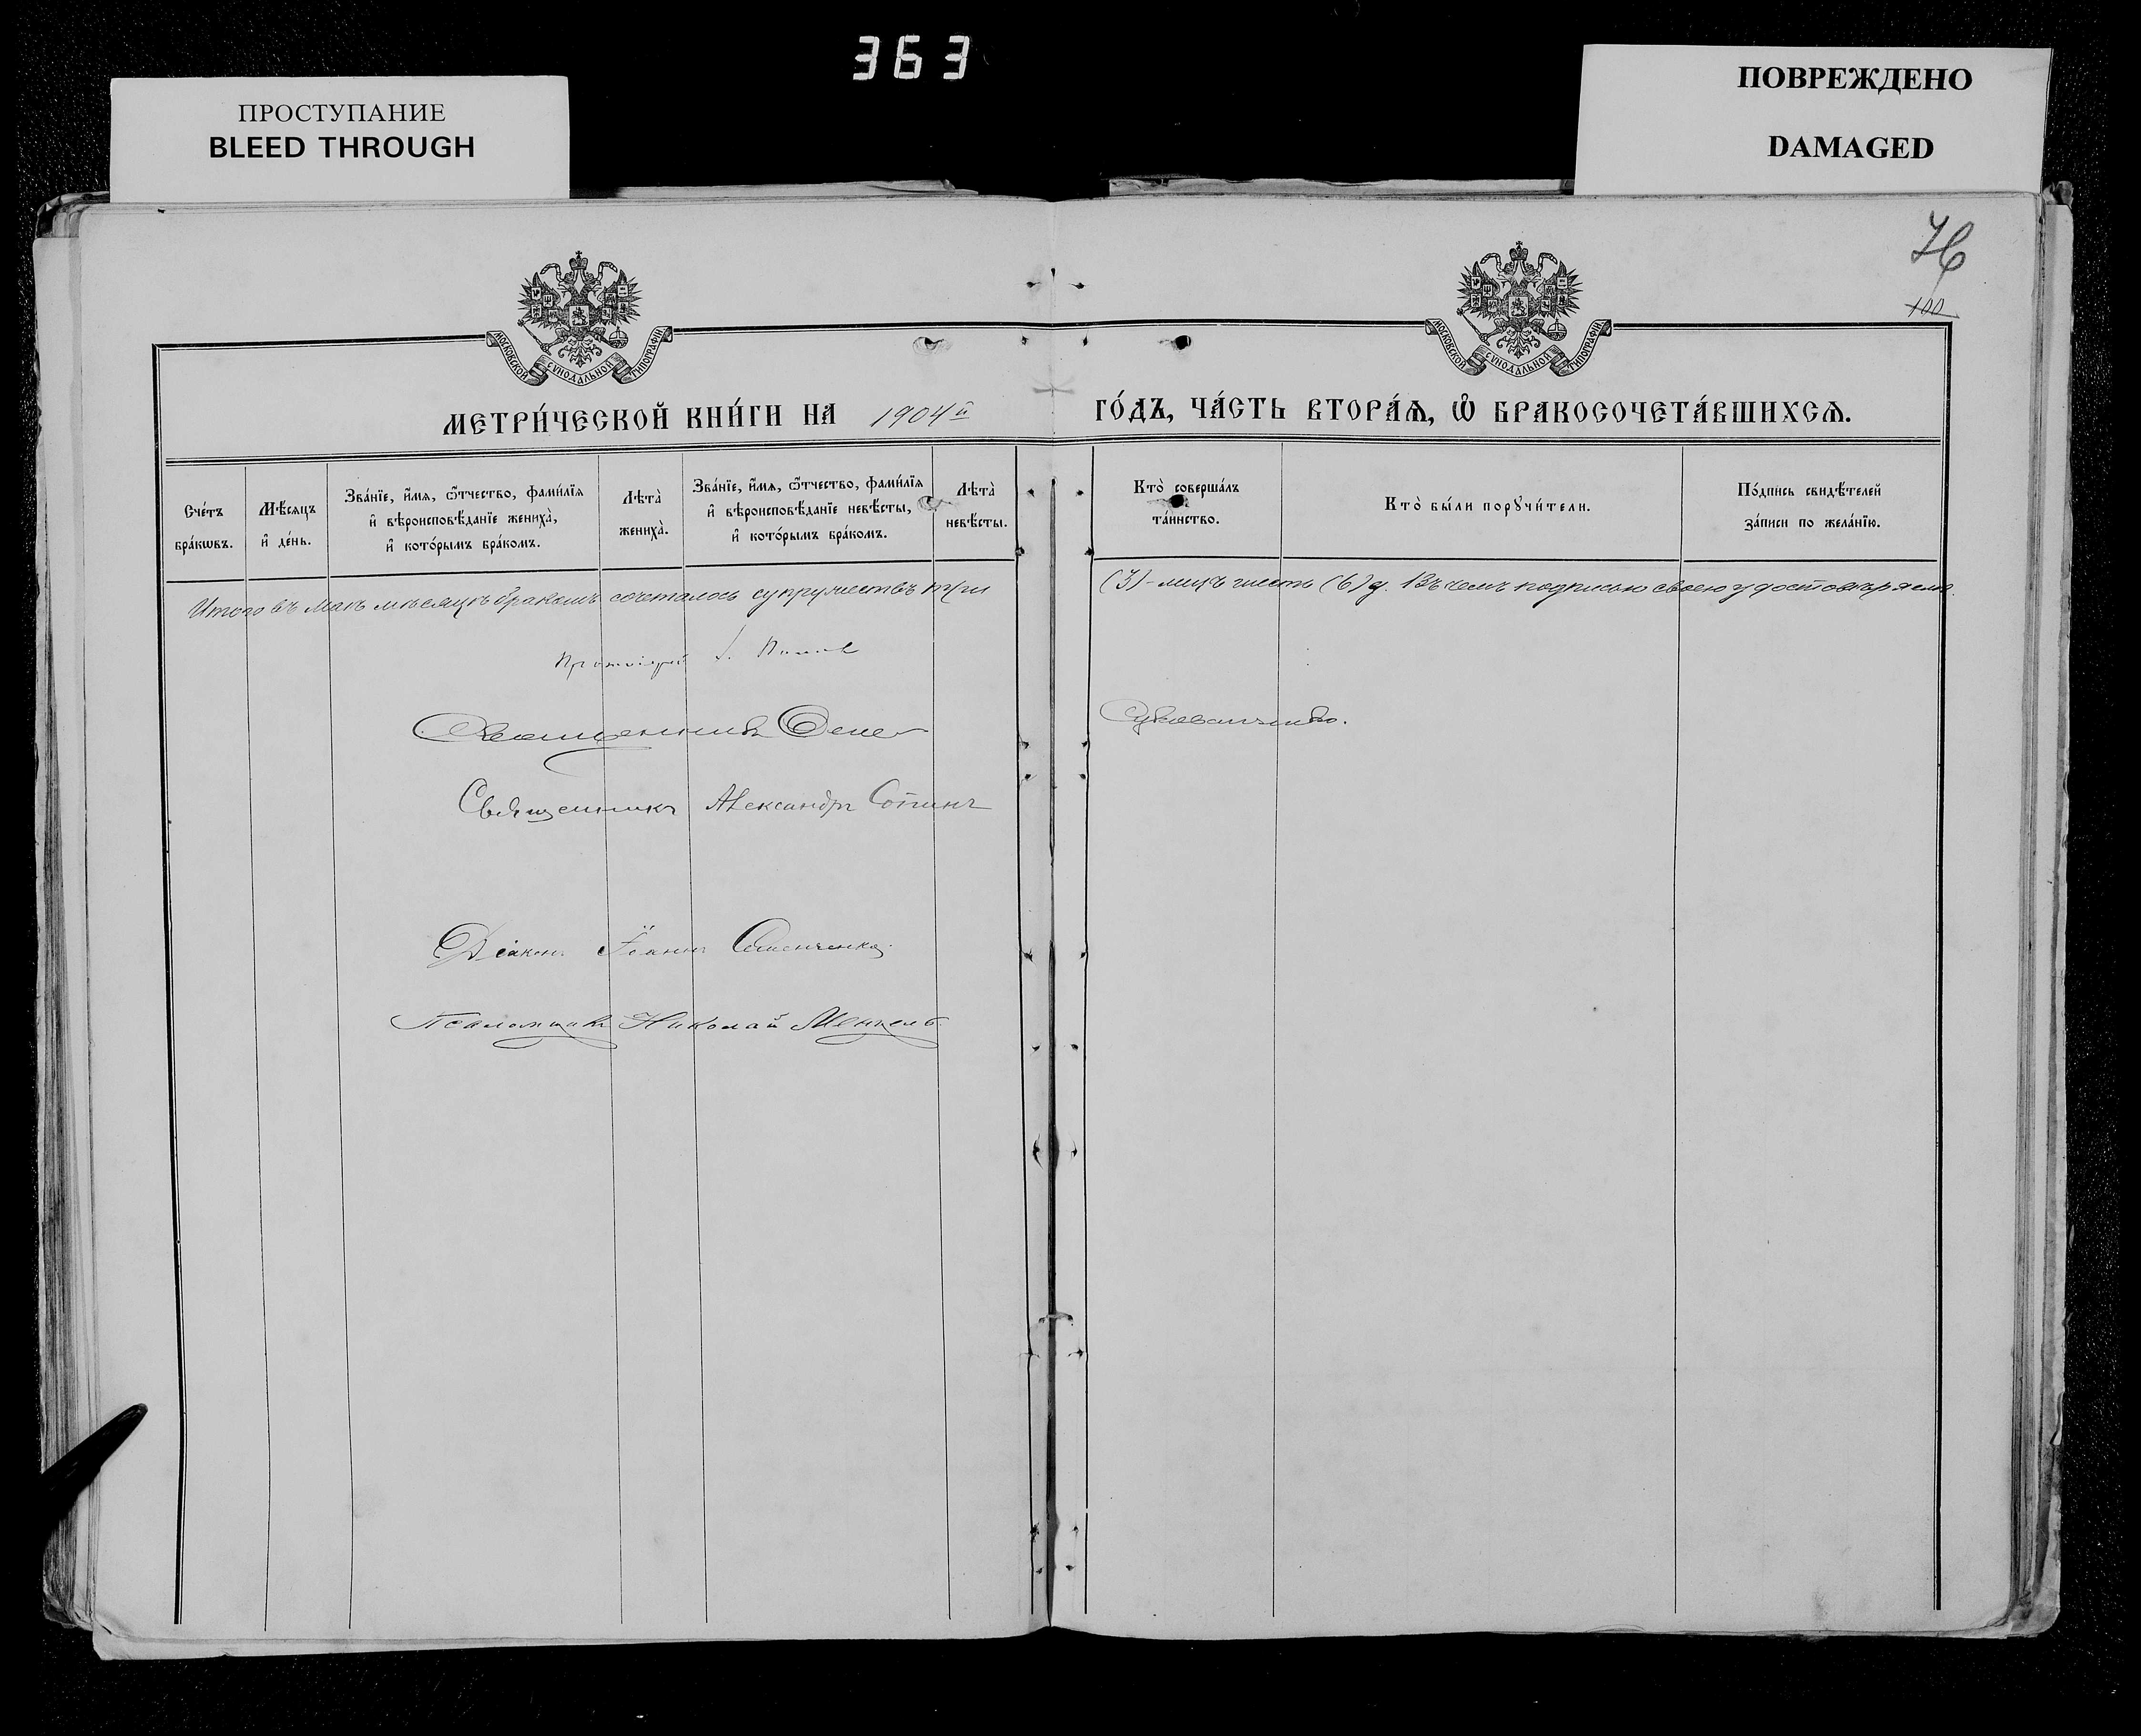 363
ПРОСТУПАНИЕ
BLEED THROUGH
ПОВРЕЖДЕНО
DAMAGED
100
МОСКОВСКОЙ СѴНОДАЛЬНОЙ ТИПОГРАФІИ
МОСКОВСКОЙ СѴНОДАЛЬНОЙ ТИПОГРАФІИ
МЕТРИ́ЧЕСКОЙ КНИ́ГИ НА 1904й ГО́ДЪ, ЧА́СТЬ ВТОРА́Ѧ, Ѡ҆ БРАКОСОЧЕТА́ВШИХСѦ.
Сче́тъ бра́кѡвъ.
Мѣ́сѧцъ и҆ де́нь.
Зва́нїе, и҆́мѧ, ѻ҆́тчество, фами́лїѧ и҆ вѣроисповѣ́данїе жениха̀, и҆ кото́рымъ бра́комъ.
Лѣта̀ жениха̀.
Зва́нїе, и҆́мѧ, ѻ҆́тчество, фами́лїѧ и҆ вѣроисповѣ́данїе невѣ́сты, и҆ кото́рымъ бра́комъ.
Лѣта̀ невѣ́сты.
Кто̀ соверша́лъ та́инство.
Кто̀ бы́ли порꙋчи́тели.
По́дпись свидѣ́телей за́писи по жела́нїю.
Итого въ маѣ мѣсяцѣ бракомъ сочеталось супружествъ три (3) - лицъ шесть (6) д. Въ чемъ подписью своею удостовѣряемъ.
Протоіерей І. Попов
Священникъ Сукованченко.
Священникъ Александръ Сотинъ
Діаконъ Іоаннъ Семенченко
Псаломщикъ Николай Менцель